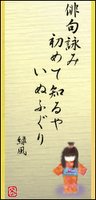 俳句詠み
初めて知るや
いぬふぐり
緑風